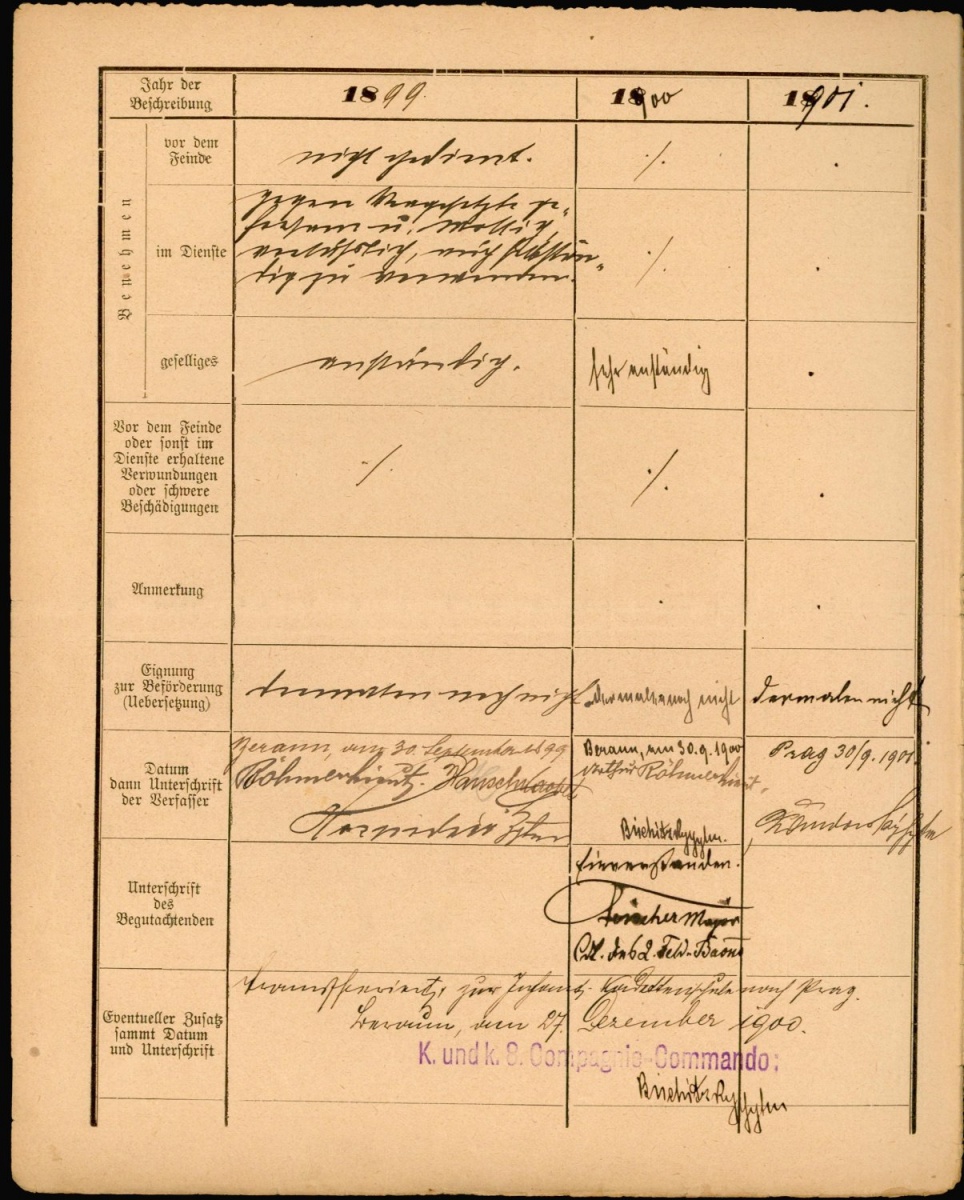 Jahr der
Beschreibung
1899.
1900
1901.
Benehmen
vor dem
Feinde
nicht gedient.
./.
.
im Dienste
gegen Vorgesetzte ge-
horsam u. willig,
verläßlich, auch selbstän-
dig zu verwenden.
./.
.
geselliges
anständig.
sehr anständig
.
Vor dem Feinde
oder sonst im
Dienste erhaltene
Verwundungen
oder schwere
Beschädigungen
./.
./.
.
Anmerkung
.
.
Eignung
zur Beförderung
(Uebersetzung)
dermalen noch nicht
dermalen noch nicht
dermalen nicht
Datum
dann Unterschrift
der Verfasser
Beraun, am 30. September 1899
Röhmer Lieut.
Beraun, am 30.9.1900
Röhmer Lieut.
Prag 30/9. 1901.
Unterschrift
des
Begutachtenden
Einverstanden.
Major
Cdt. des 2. Feld-Baons
Eventueller Zusatz
sammt Datum
und Unterschrift
Transferiert, zur Infant. Kadettenschule nach Prag.
Beraun, am 27. Dezember 1900.
K. und k. 8. Compagnie-Commando: